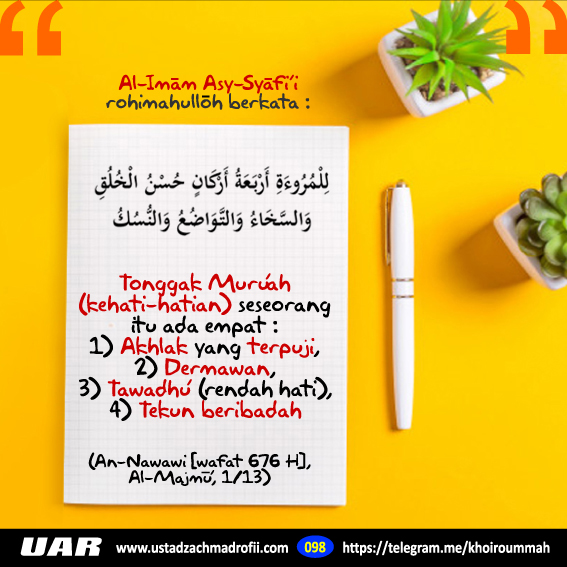 Al-Imām Asy-Syāfi'i
rohimahullōh berkata :
لِلْمُرُوءَةِ أَرْبَعَةُ أَرْكَانٍ حُسْنُ الْخُلُقِ
وَالسَّخَاءُ وَالتَّوَاضُعُ وَالنُّسُكُ
Tonggak Murū'ah
(kehati-hatian) seseorang
itu ada empat :
1) Akhlak yang terpuji,
2) Dermawan,
3) Tawadhu' (rendah hati),
4) Tekun beribadah
(An-Nawawi [wafat 676 H],
Al-Majmū', 1/13)
UAR www.ustadzachmadrofii.com 098 https://telegram.me/khoiroummah